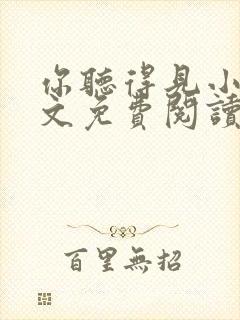 你聽得見小
文免費閱讀
百里無招